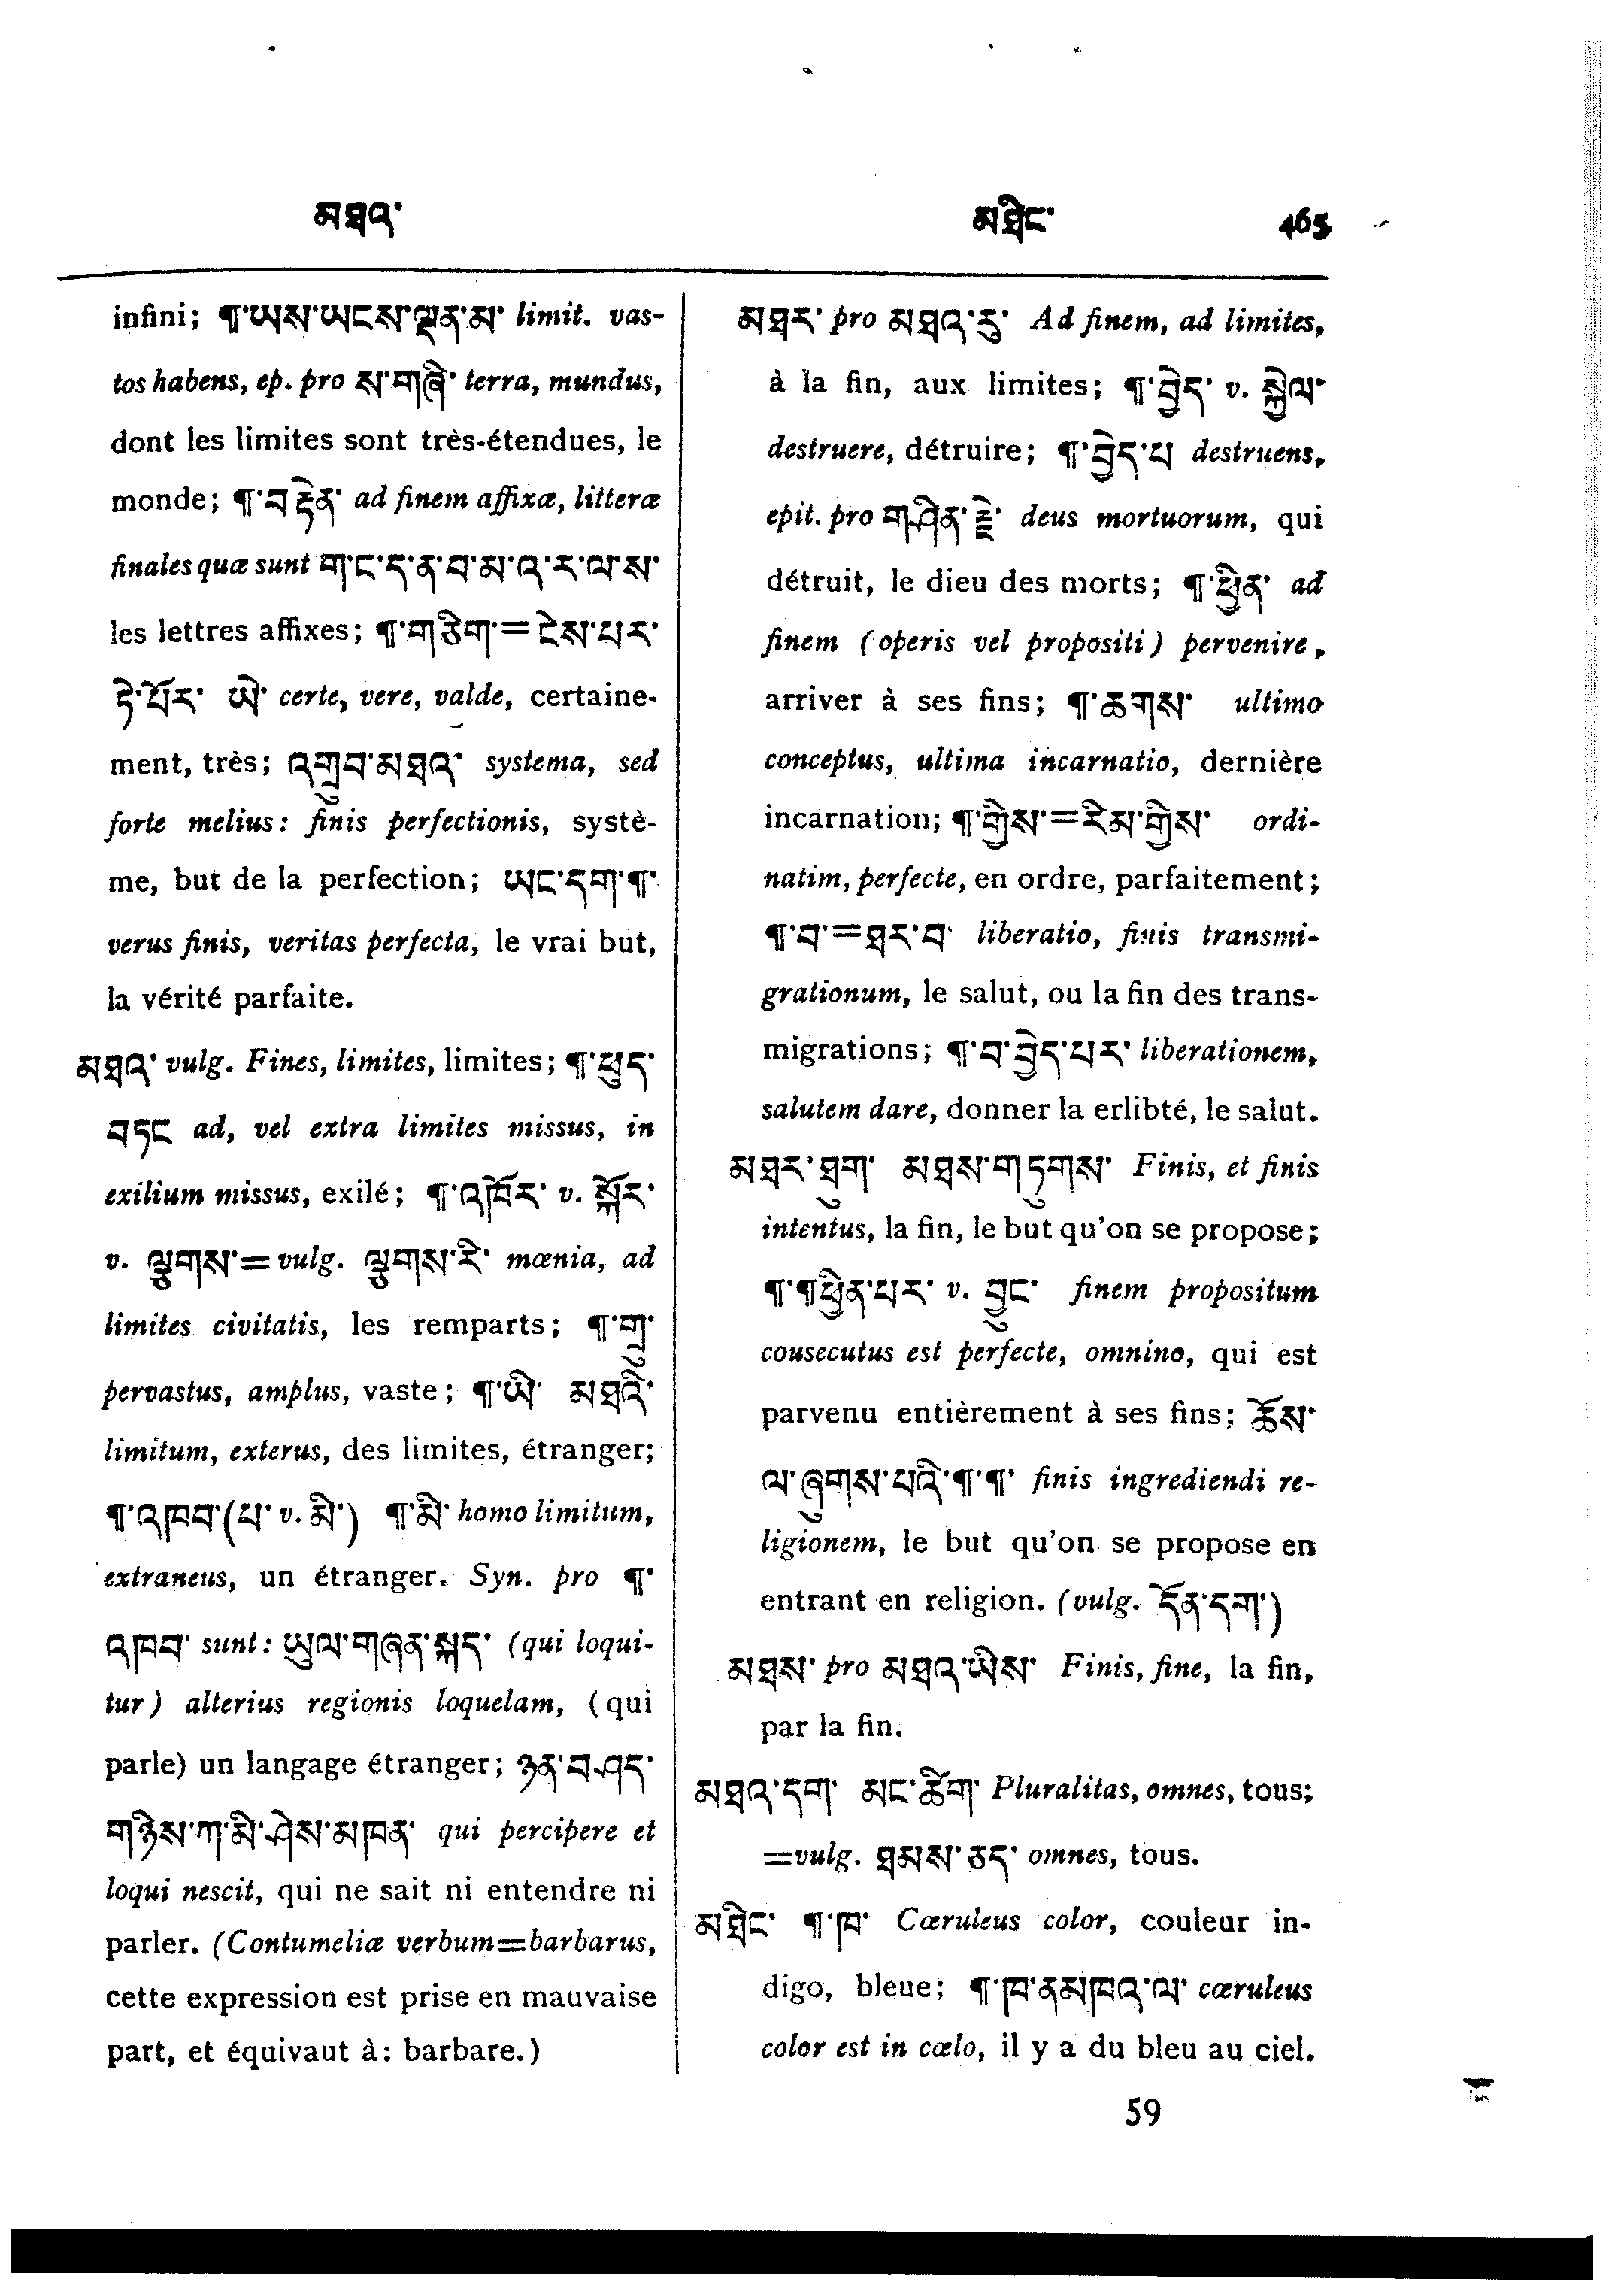 མཐའ་
མཐིང་ 465
infini; ¶་ཡས་ཡངས་ལྡན་མ་ limit. vas-
tos habens, ep. pro ས་གཞི་ terra, mundus,
dont les limites sont très-étendues, le
monde; ¶་བརྟེན་ ad finem affixæ, litteræ
finales quæ sunt ག་ང་ད་ན་བ་མ་འ་ར་ལ་ས་
les lettres affixes; ¶་གཅིག་=ངེས་པར་
ཏེ་པོར་ ཡེ་ certe, vere, valde, certaine-
ment, très; འགྲུབ་མཐའ་ systema, sed
forte melius: finis perfectionis, systè-
me, but de la perfection; ཡང་དག་¶་
verus finis, veritas perfecta, le vrai but,
la vérité parfaite.
མཐའ་ vulg. Fines, limites, limites; ¶་ཕུད་
བཏང ad, vel extra limites missus, in
exilium missus, exilé; ¶་འཁོར་ v. སྐོར་
v. ལྕུགས་=vulg. ལྕུགས་རི་ mœnia, ad
limites civitatis, les remparts; ¶་གྲུ་
pervastus, amplus, vaste; ¶་ཡི་ མཐའི་
limitum, exterus, des limites, étranger;
¶་འཁབ་(པ་ v. མི་) ¶་མི་ homo limitum,
extraneus, un étranger. Syn. pro ¶་
འཁབ་ sunt: ཡུལ་གཞན་སྐད་ (qui loqui-
tur) alterius regionis loquelam, (qui
parle) un langage étranger; ཉན་བཤད་
གཉིས་ཀ་མི་ཤེས་མཁན་ qui percipere et
loqui nescit, qui ne sait ni entendre ni
parler. (Contumeliæ verbum=barbarus,
cette expression est prise en mauvaise
part, et équivaut à: barbare.)
མཐར་ pro མཐའ་རུ་ Ad finem, ad limites,
à la fin, aux limites; ¶་བྱེད་ v. སྐྱེལ་
destruere, détruire; ¶་བྱེད་པ destruens,
epit. pro གཤིན་རྗེ་ deus mortuorum, qui
détruit, le dieu des morts; ¶་ཕྱིན་ ad
finem (operis vel propositi) pervenire,
arriver à ses fins; ¶་ཆགས་ ultimo
conceptus, ultima incarnatio, dernière
incarnation; ¶་གྱིས་=རིམ་གྱིས་ ordi-
natim, perfecte, en ordre, parfaitement;
¶་བ་=ཐར་བ་ liberatio, finis transmi-
grationum, le salut, ou la fin des trans-
migrations; ¶་བ་བྱེད་པར་ liberationem,
salutem dare, donner la erlibté, le salut.
མཐར་ཐུག་ མཐས་གཏུགས་ Finis, et finis
intentus, la fin, le but qu'on se propose;
¶་¶ཕྱིན་པར་ v. བྱུང་ finem propositum
cousecutus est perfecte, omnino, qui est
parvenu entièrement à ses fins; ཆོས་
ལ་ཞུགས་པའི་¶་¶་ finis ingrediendi re-
ligionem, le but qu'on se propose en
entrant en religion. (vulg. དོན་དག་)
མཐས་ pro མཐའ་ཡིས་ Finis, fine, la fin,
par la fin.
མཐའ་དག་ མང་ཚིག་ Pluralitas, omnes, tous;
=vulg. ཐམས་ཅད་ omnes, tous.
མཐིང་ ¶་ཁ་ Cæruleus color, couleur in-
digo, bleue; ¶་ཁ་ནམཁའ་ལ་ cæruleus
color est in cœlo, il y a du bleu au ciel.
59